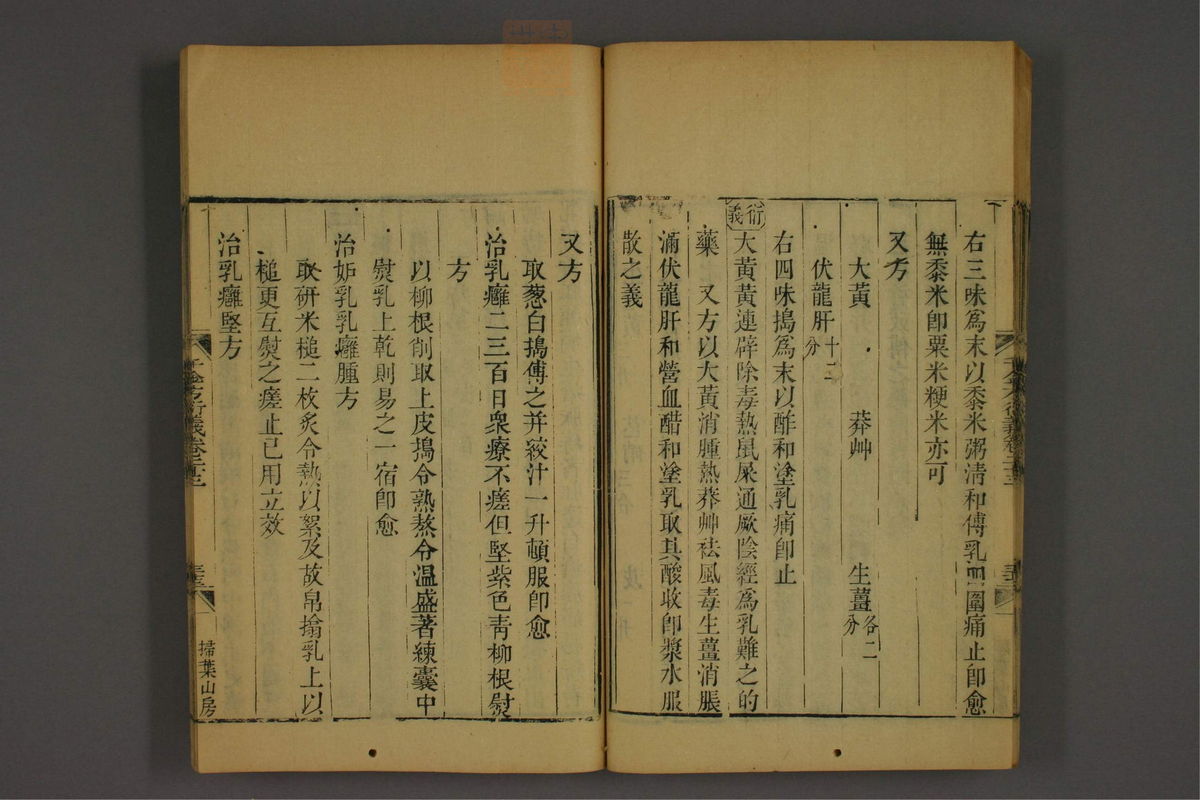 右三味爲末以黍米粥清和傅乳四圍痛止卽愈
無黍米卽粟米粳米亦可
又方
大黃　莽艸　生薑各二分
伏龍肝十二分
右四味搗爲末以酢和塗乳痛卽止
衍義
大黃黃連辟除毒熱鼠屎通厥陰經爲乳難之的
藥　又方以大黃消腫熱莽艸祛風毒生薑消脹
滿伏龍肝和營血醋和塗乳取其酸收卽漿水服
散之義
千金方衍義卷二十三
又方
取葱白搗傅之并絞汁一升頓服卽愈
治乳癰二三百日衆療不瘥但堅紫色靑柳根熨
方
以柳根削取上皮搗令熟熬令温盛著練囊中
熨乳上乾則易之一宿卽愈
治妬乳乳癰腫方
取研米槌二枚炙令熱以絮及故帛搨乳上以
槌更互熨之瘥止已用立效
治乳癰堅方
千金方衍義卷二十三
掃葉山房